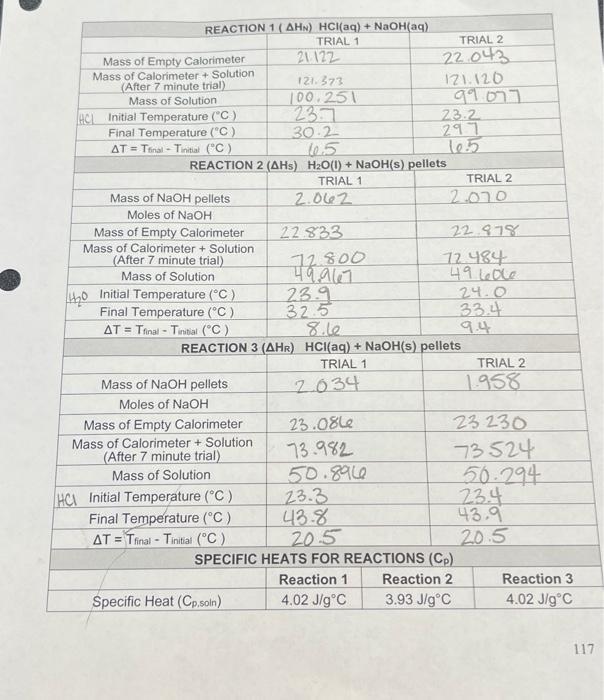 REACTION 1 ( ΔHN) HCl(aq) + NaOH(aq)
TRIAL 1 TRIAL 2
Mass of Empty Calorimeter 21.122 22.043
Mass of Calorimeter + Solution (After 7 minute trial) 121.373 121.120
Mass of Solution 100.251 99.077
HCl Initial Temperature (°C ) 23.7 23.2
Final Temperature (°C ) 30.2 29.7
ΔT = Tfinal - Tinitial (°C ) 6.5 6.5
REACTION 2 (ΔHS) H2O(l) + NaOH(s) pellets
TRIAL 1 TRIAL 2
Mass of NaOH pellets 2.062 2.070
Moles of NaOH
Mass of Empty Calorimeter 22.833 22.878
Mass of Calorimeter + Solution (After 7 minute trial) 72.800 72.484
Mass of Solution 49.967 49.606
H2O Initial Temperature (°C ) 23.9 24.0
Final Temperature (°C ) 32.5 33.4
ΔT = Tfinal - Tinitial (°C ) 8.6 9.4
REACTION 3 (ΔHR) HCl(aq) + NaOH(s) pellets
TRIAL 1 TRIAL 2
Mass of NaOH pellets 2.034 1.958
Moles of NaOH
Mass of Empty Calorimeter 23.086 23.230
Mass of Calorimeter + Solution (After 7 minute trial) 73.982 73.524
Mass of Solution 50.896 50.294
HCl Initial Temperature (°C ) 23.3 23.4
Final Temperature (°C ) 43.8 43.9
ΔT = Tfinal - Tinitial (°C ) 20.5 20.5
SPECIFIC HEATS FOR REACTIONS (CP)
Reaction 1 Reaction 2 Reaction 3
Specific Heat (CP,soln) 4.02 J/g°C 3.93 J/g°C 4.02 J/g°C
117